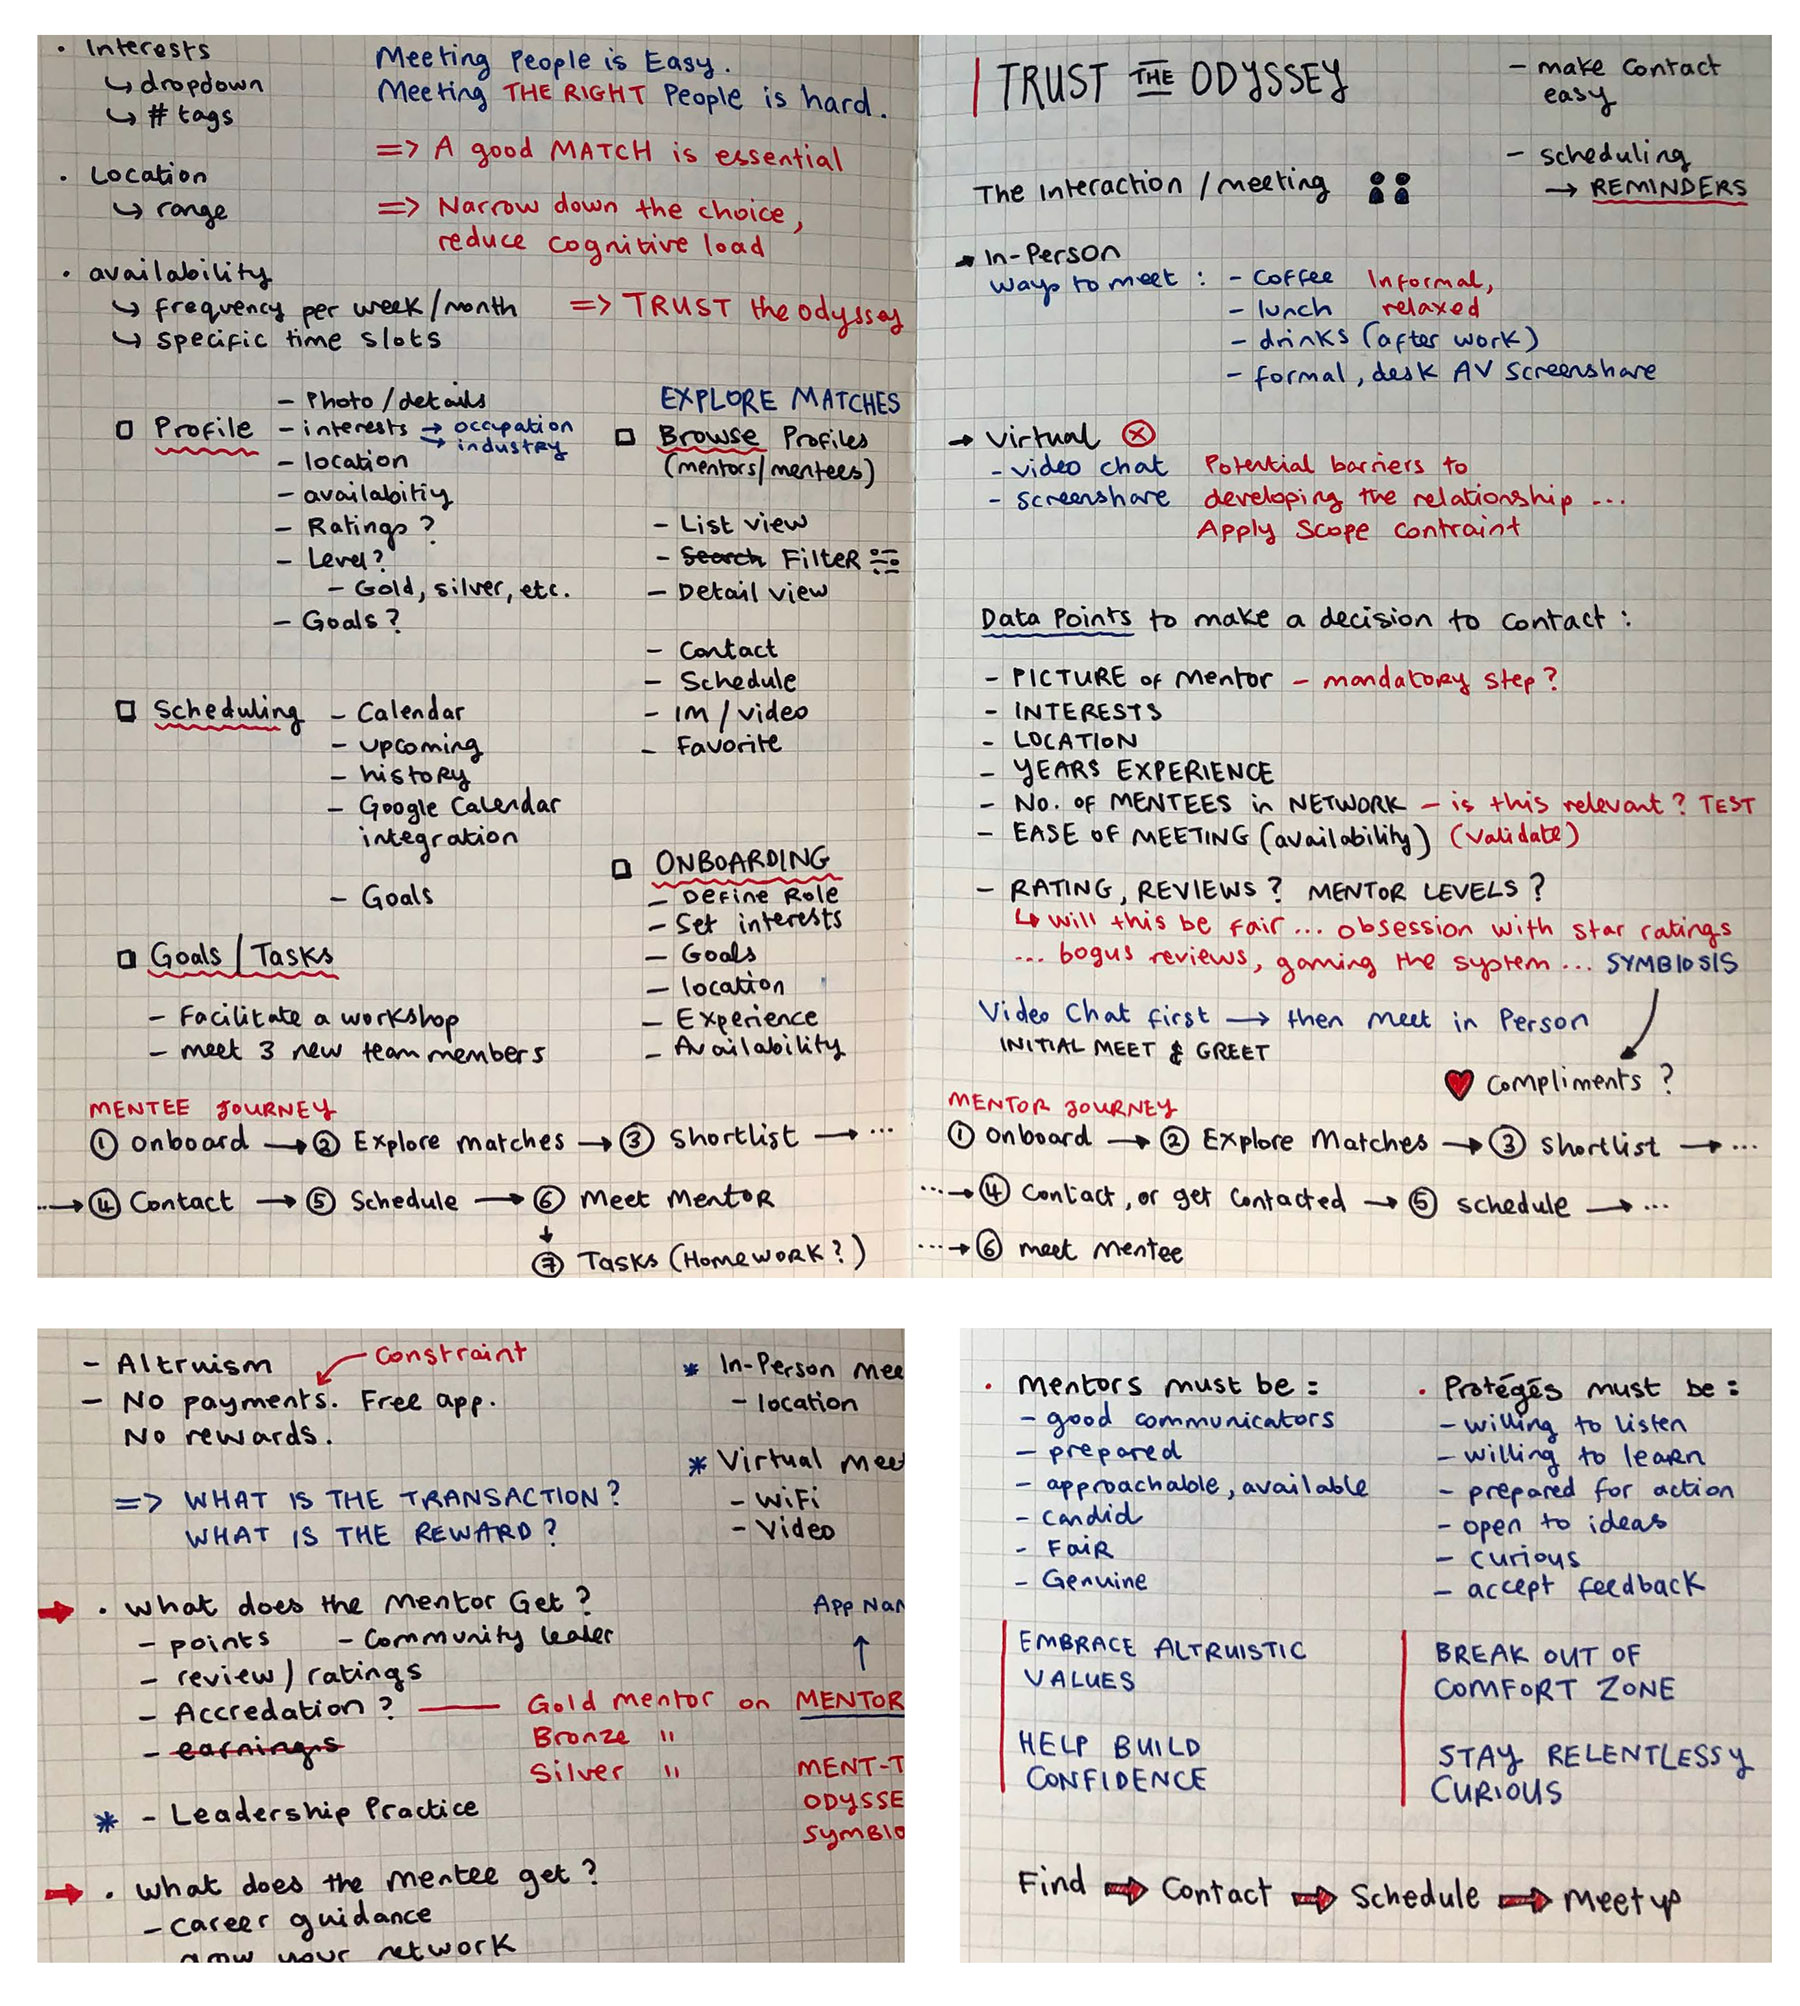 • Interests
↳ dropdown
↳ # tags
• Location
↳ range
• availability
↳ frequency per week/month
↳ specific time slots
Meeting People is Easy.
Meeting THE RIGHT People is hard.
=> A good MATCH is essential
=> Narrow down the choice,
reduce cognitive load
=> TRUST the odyssey
□ Profile
- Photo/details
- interests → occupation
→ industry
- location
- availabitiy
- Ratings?
- Level?
- Gold, silver, etc.
- Goals?
□ Scheduling
- Calendar
- upcoming
- history
- Google Calendar
integration
- Goals
□ Goals/Tasks
- Facilitate a workshop
- meet 3 new team members
EXPLORE MATCHES
□ Browse Profiles
(mentors/mentees)
- List view
- Search Filter
- Detail view
- Contact
- Schedule
- IM/video
- Favorite
□ ONBOARDING
- Define Role
- Set interests
- Goals
- location
- Experience
- Availability
MENTEE JOURNEY
① onboard → ② Explore matches → ③ shortlist → ...
...→ ④ Contact → ⑤ Schedule → ⑥ Meet Mentor
↓
⑦ Tasks (Homework?)
TRUST THE ODYSSEY
- make contact
easy
- scheduling
→ REMINDERS
The Interaction/meeting
→ In-Person
Ways to meet : - coffee Informal,
- lunch relaxed
- drinks (after work)
- formal, desk AV Screenshare
→ Virtual ⓧ
- video chat Potential barriers to
- screenshare developing the relationship ...
Apply Scope contraint
Data Points to make a decision to contact :
- PICTURE of mentor - mandatory step?
- INTERESTS
- LOCATION
- YEARS EXPERIENCE
- No. of MENTEES in NETWORK - is this relevant? TEST
- EASE OF MEETING (availability) (validate)
- RATING, REVIEWS? MENTOR LEVELS?
↳ will this be fair ... obsession with star ratings
... bogus reviews, gaming the system ... SYMBIOSIS
Video Chat first → then meet in Person
INITIAL MEET & GREET
♥ compliments?
MENTOR JOURNEY
① onboard → ② Explore Matches → ③ shortlist → ...
...→ ④ Contact, or get contacted → ⑤ schedule → ...
...→ ⑥ meet mentee
- Altruism
constraint
- No payments. Free app.
No rewards.
=> WHAT IS THE TRANSACTION?
WHAT IS THE REWARD?
* In-Person mee
- location
* Virtual meet
- WiFi
- Video
→ • What does the mentor Get?
- points - Community leader
- review/ratings
- Accredation? — Gold mentor on MENTOR
Bronze "
Silver "
- earnings
* - Leadership Practice
App Nam
↑
MENT-T
ODYSSE
SymBIO
→ • What does the mentee get?
- career guidance
grow your network
• mentors must be :
- good communicators
- prepared
- approachable, available
- candid
- Fair
- Genuine
EMBRACE ALTRUISTIC
VALUES
HELP BUILD
CONFIDENCE
• Protégés must be :
- willing to listen
- willing to learn
- prepared for action
- open to ideas
- curious
- accept feedback
BREAK OUT OF
COMFORT ZONE
STAY RELENTLESSY
CURIOUS
Find → Contact → Schedule → Meet up